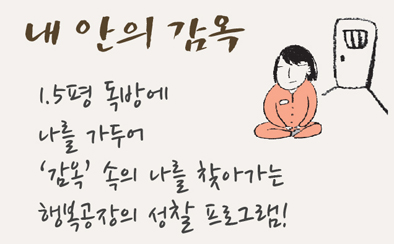 내 안의 감옥
1.5평 독방에
나를 가두어
'감옥' 속의 나를 찾아가는
행복공장의 성찰 프로그램!